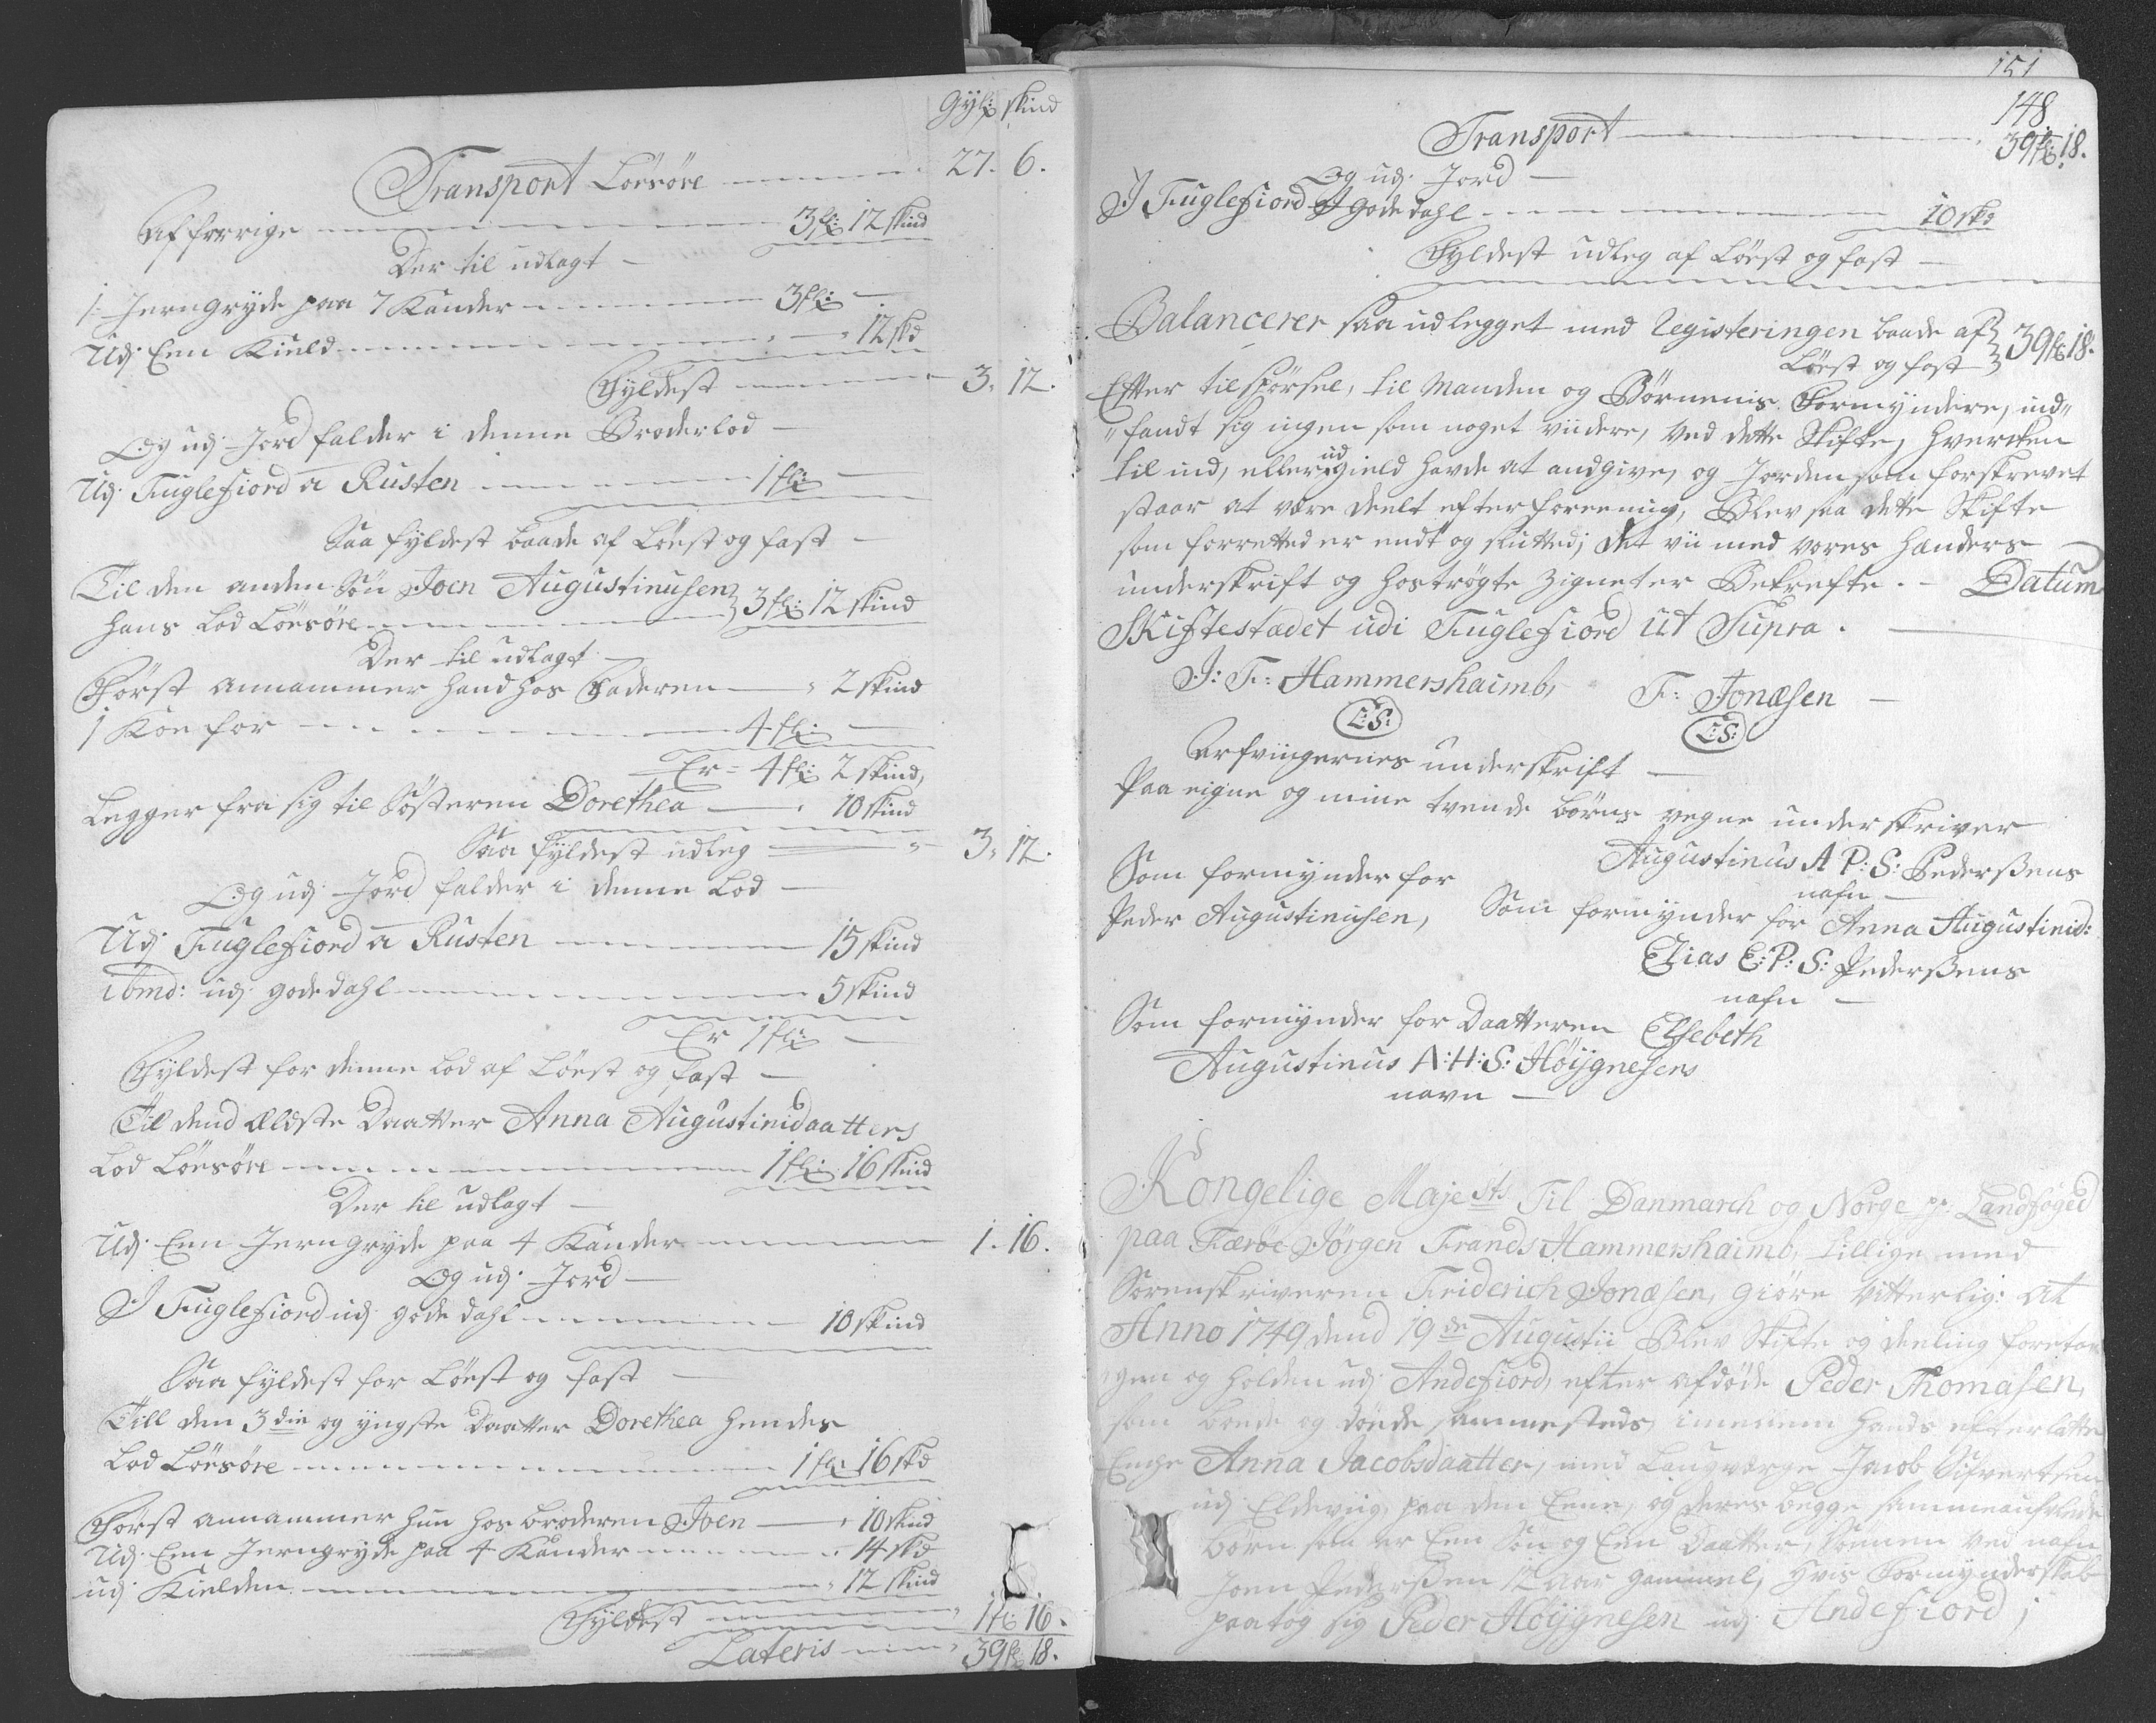 Gyl: skind
Transport Löösöre 27. 6.
Af forrige 3 fl: 12 skind
Der til udlagt
1 Jerngryde paa 7 Kander 3 fl:
Udj Een Kield 12 skd
Fyldest 3. 12.
Og udj Jord falder i denne Broderlod
Udj Fuglefiord a Rusten 1 fl:
Saa fyldest baade af Löest og fast
Til den anden Sön Joen Augustinusen
hans Lod Löesöre 3 fl: 12 skind
Der til udlagt
Först annammer hand hos Faderen 2 skind
1 Koe for 4 fl:
Er 4 fl: 2 skind,
Legger fra sig til Sösteren Dorethea 10 skind
Saa fyldest udleg 3. 12.
Og udj Jord falder i denne Lod
Udj Fuglefiord a Rusten 15 skind
ibmd: udj gode dahl 5 skind
Er 1 fl:
Fyldest for denne Lod af Löest og fast
Til dend Ældste Daatter Anna Augustinidaatters
Lod Löesöre 1 fl: 16 skind
Der til udlagt
Udj Een Jerngryde paa 4 Kander 1. 16.
Og udj Jord
J Fuglefiord udj gode dahl 10 skind
Saa fyldest for Löest og fast
Till den 3die og yngste Daatter Dorethea hendes
Lod Löesöre 1 fl: 16 skd
Först annammer hun hos broderen Joen 10 skind
Udj Een Jerngryde paa 4 Kander 14 skd
udj Kielden 12 skind
Fyldest 1 fl: 16.
Lateris 39 fl: 18.
151
148
Transport 39 fl: 18.
Og udj Jord
J Fuglefiord J gode dahl 10 skd
Fyldest udleg af Löest og fast
Balancerer saa udlegget med Registeringen baade af
Löest og fast 39 fl: 18.
Efter tilspörsel, til Manden og Börnenis Formyndere, ind„
„fandt sig ingen som noget viidere, ved dette Skifte, hvercken
til ind, eller ud Gield havde at andgive, og Jorden som forskrevet
staar at være deelt efter foreening, Blev saa dette Skifte
som forretted er endt og sluttedj det vii med vores Hænders
underskrift og hoströgte Zigneter Bekrefte. Datum
Skiftestædet udi Fuglefiord ut Supra.
J: F: Hammershaimb, F: Jonæsen
L:S: L:S:
Arfvingernes underskrift
Paa eigne og mine tvende börns vegne underskriver
Augustinus A P: S: Pederssens
nafn
Som formynder for
Peder Augustinusen, Som formynder for Anna Augustinid:
Elias E: P: S: Pederssens
nafn
Som formynder for Daatteren Elsebeth
Augustinus A: H: S: Höijgnesens
navn
Kongelige Majests Til Danmarck og Norge pp. Landfoged
paa Færöe Jörgen Frands Hammershaimb, tillige med
Sorenskriveren Friderich Jonæsen, Giöre Vitterlig: at
Anno 1749 dend 19de Augustii Blev Skifte og deeling foreta„
„gen og holden udj Andefiord, efter afdöde Peder Thomasen,
som boede og döede sammesteds, imellem hands efterlatte
Enche Anna Jacobsdaatter, med Laugværge Jacob Sifvertsen
udj Eldeviig, paa den Eene, og deres begge sammenaufvlede
börn som er Een Sön og Een Daatter, Sönnen ved nafn
Joen Pederssen 12 aar gammel, hvis Formynderskab
paatog sig Peder Höijgnesen udj Andefiord;